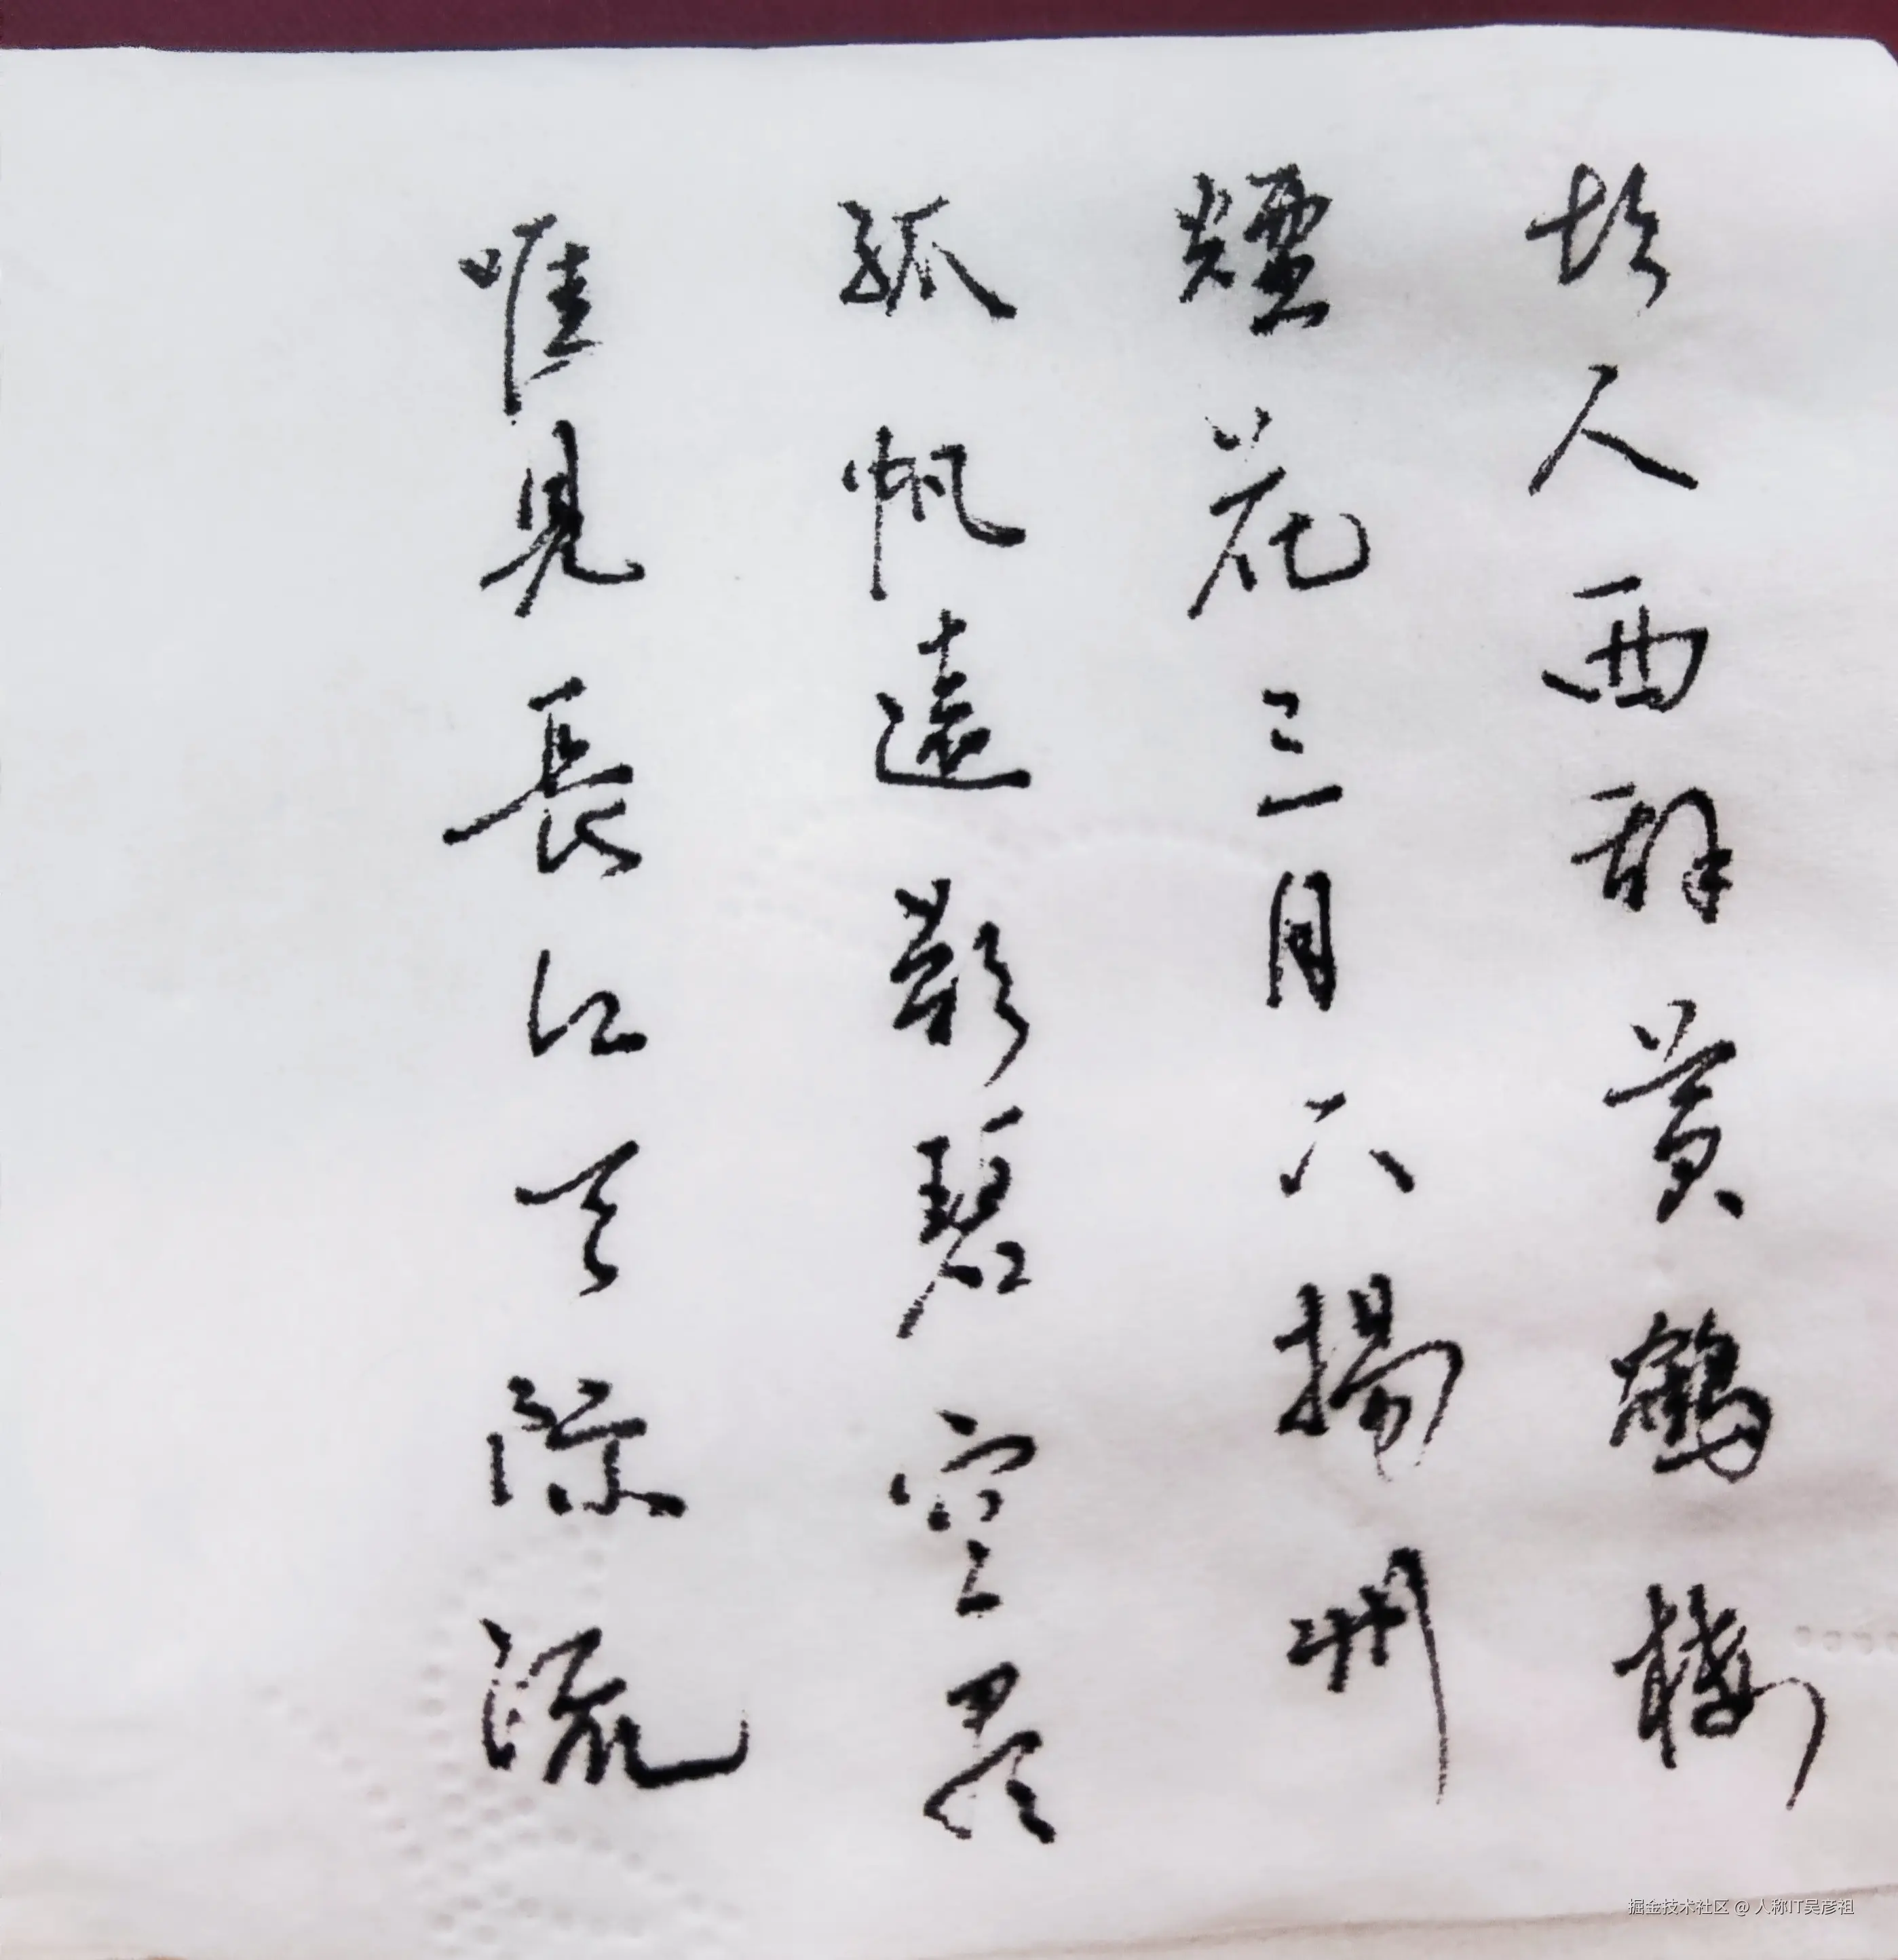 故人西辞黄鹤楼
煙花三月下揚州
孤帆遠影碧空尽
唯見長江天際流
掘金技术社区 @ 人称IT吴彦祖